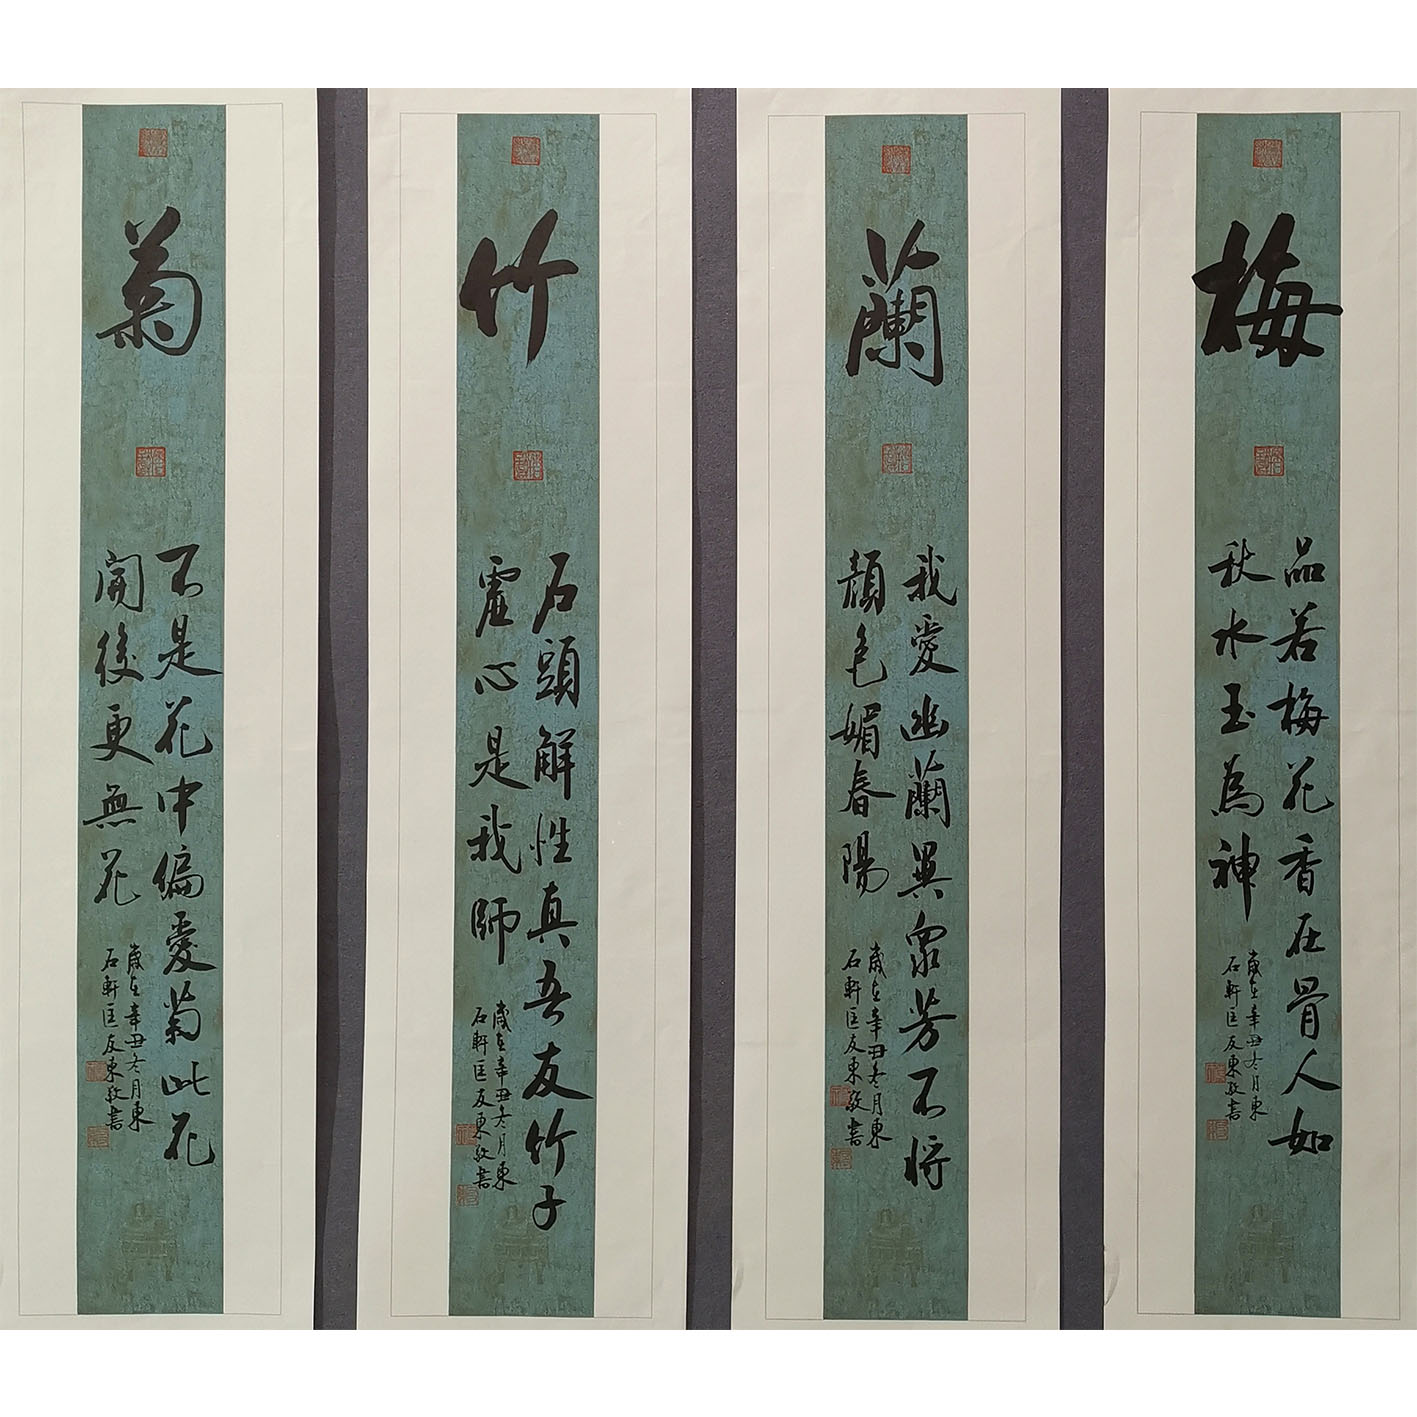 梅
品若梅花香在骨人如
秋水玉為神
歲在辛丑冬月東
石軒匡友東敬書
蘭
我愛幽蘭異衆芳不将
顏色媚春陽
歲在辛丑冬月東
石軒匡友東敬書
竹
石頭解性真吾友竹子
虛心是我師
歲在辛丑冬月東
石軒匡友東敬書
菊
不是花中偏愛菊此花
開後更無花
歲在辛丑冬月東
石軒匡友東敬書